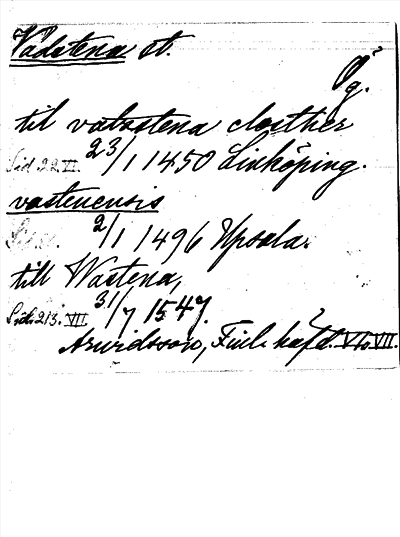 Vadstena st.
Ög.
til vatzstena closther
Sid 22 VI. 23/1 1450 Linköping.
vastenensis
2/1 1496 Upsala.
till Wastena,
Sid. 213. VIII 31/7 1547.
Arwidsson, Finl. häfd. VI o. VII.